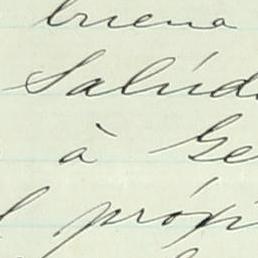 buena
Salúd
à Ge
l própi